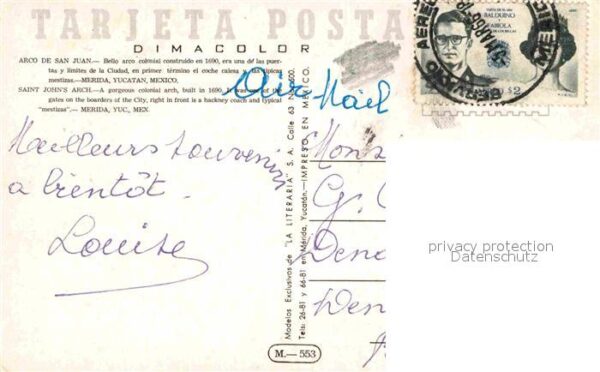 TARJETA POSTA
DIMACOLOR
ARCO DE SAN JUAN.— Bello arco colonial construido en 1690, era una de las puertas y límites de la Ciudad, en primer término el coche calesa y las típicas
mestizas.—MERIDA, YUCATAN, MEXICO.
SAINT JOHN'S ARCH.—A gorgeous colonial arch, built in 1690. It was one of the
gates on the boarders of the City, right in front is a hackney coach and typical
"mestizas".— MERIDA, YUC., MEX.
Air Mail
BALDUINO
FABIOLA
AEREO
MEXICO
$2
Meilleurs souvenirs
a bientôt.
Louise
Modelos Exclusivos de "LA LITERARIA" S. A. Calle 63 No. 500.
Tels: 26-81 y 66-81 en Mérida, Yucatán.—IMPRESO EN MEXICO.
M.—553
Mons
G.
privacy protection
Datenschutz